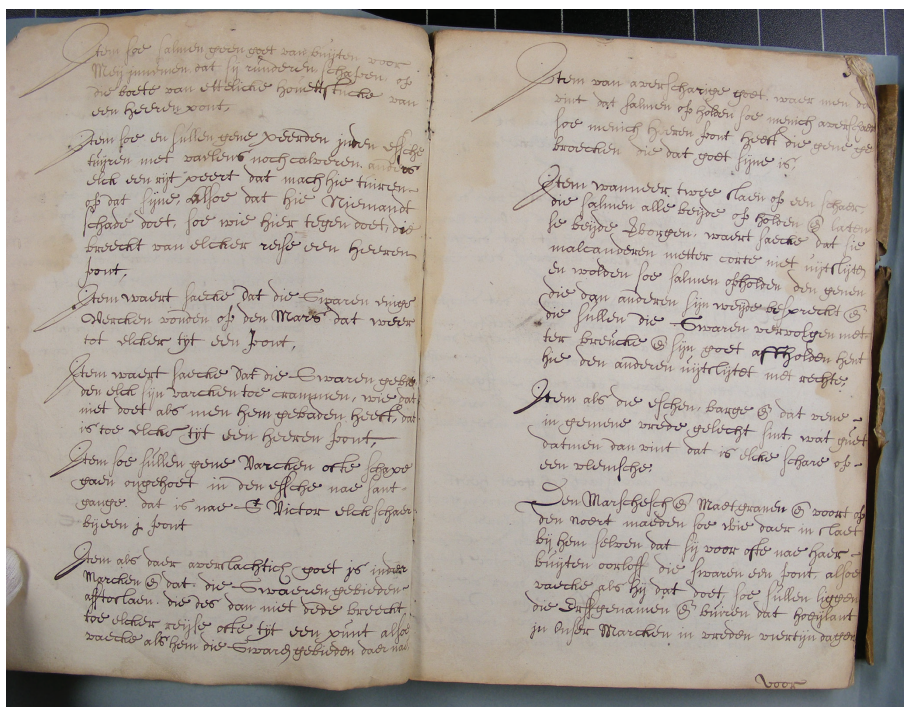 Item soe salmen geen goet van buijten voor
Meij innemen dat sij runderen schapen off
die boete van ettelicke hondert stucke van
een heeren pont.
Item soe en sullen gene peerden inden essche
tuijren met vaelens noch calveren, anders
elck een rijt peert dat mach hie tuiren
op dat sijne, alsoe dat hie Niemandt
schade doet, soe wie hier tegen doet, die
breeckt van elcker reijse een Heeren
pont,
Item waert saecke dat die Swaren enige
Vercken vonden op den Mars dat weer
tot elcker tijt een pont,
Item waert saecke dat die Swaren gebie
den elck sijn varcken toe crammen, wie dat
niet doet als men hem gebaden heeft, dat
is toe elcke tijt een heeren pont,
Item soe sullen gene Varcken ofte schape
gaen ongehoet in den essche nae sant
gange. dat is nae S Victor elck schaer
bij een j pont
Item als daer averlachtich goet is inder
Marcken & dat die Swaeren gebieden
afftoslaen. die des dan niet dede breeckt,
toe elcker reijse ofte tijt een punt alsoe
vaecke als hem die Swaren gebieden daer nae
Item van averscharige goet, waer men da
vint dat salmen op holden soe menich averschaer
soe menich Heeren pont heeft die gene ge
broecken die dat goet sijne is.
Item wanneer twee slaen op een schaer,
die salmen alle beijde op holden & laten
se beijde borgen. waert saecke dat sie
malcanderen metter corte niet uijtslijten
en wolden soe salmen opholden den genen
die dan anderen sijn weijde bespreckt &
die sullen die Swaren vervolgen met
ter breucke & sijn goet affholden hent
hie den anderen uijtslijtet met rechte.
Item als die esschen, barge & dat vene
in gemene vrede gelecht sint, wat guet
datmen dan vint dat is elcke schare op
een vlemsche.
Den Marschesch & Maetgraven & voort op
den noert maedden soe wie daer in slaet
bij hem selven dat sij voor ofte nae haer
buijten oorloff die swaren een pont, alsoe
vaecke als hij dat doet, soe sullen liggen
die Erffgenamen & buiren dat hoeijlant
in unser Marcken in vreden viertijn dagen
voor